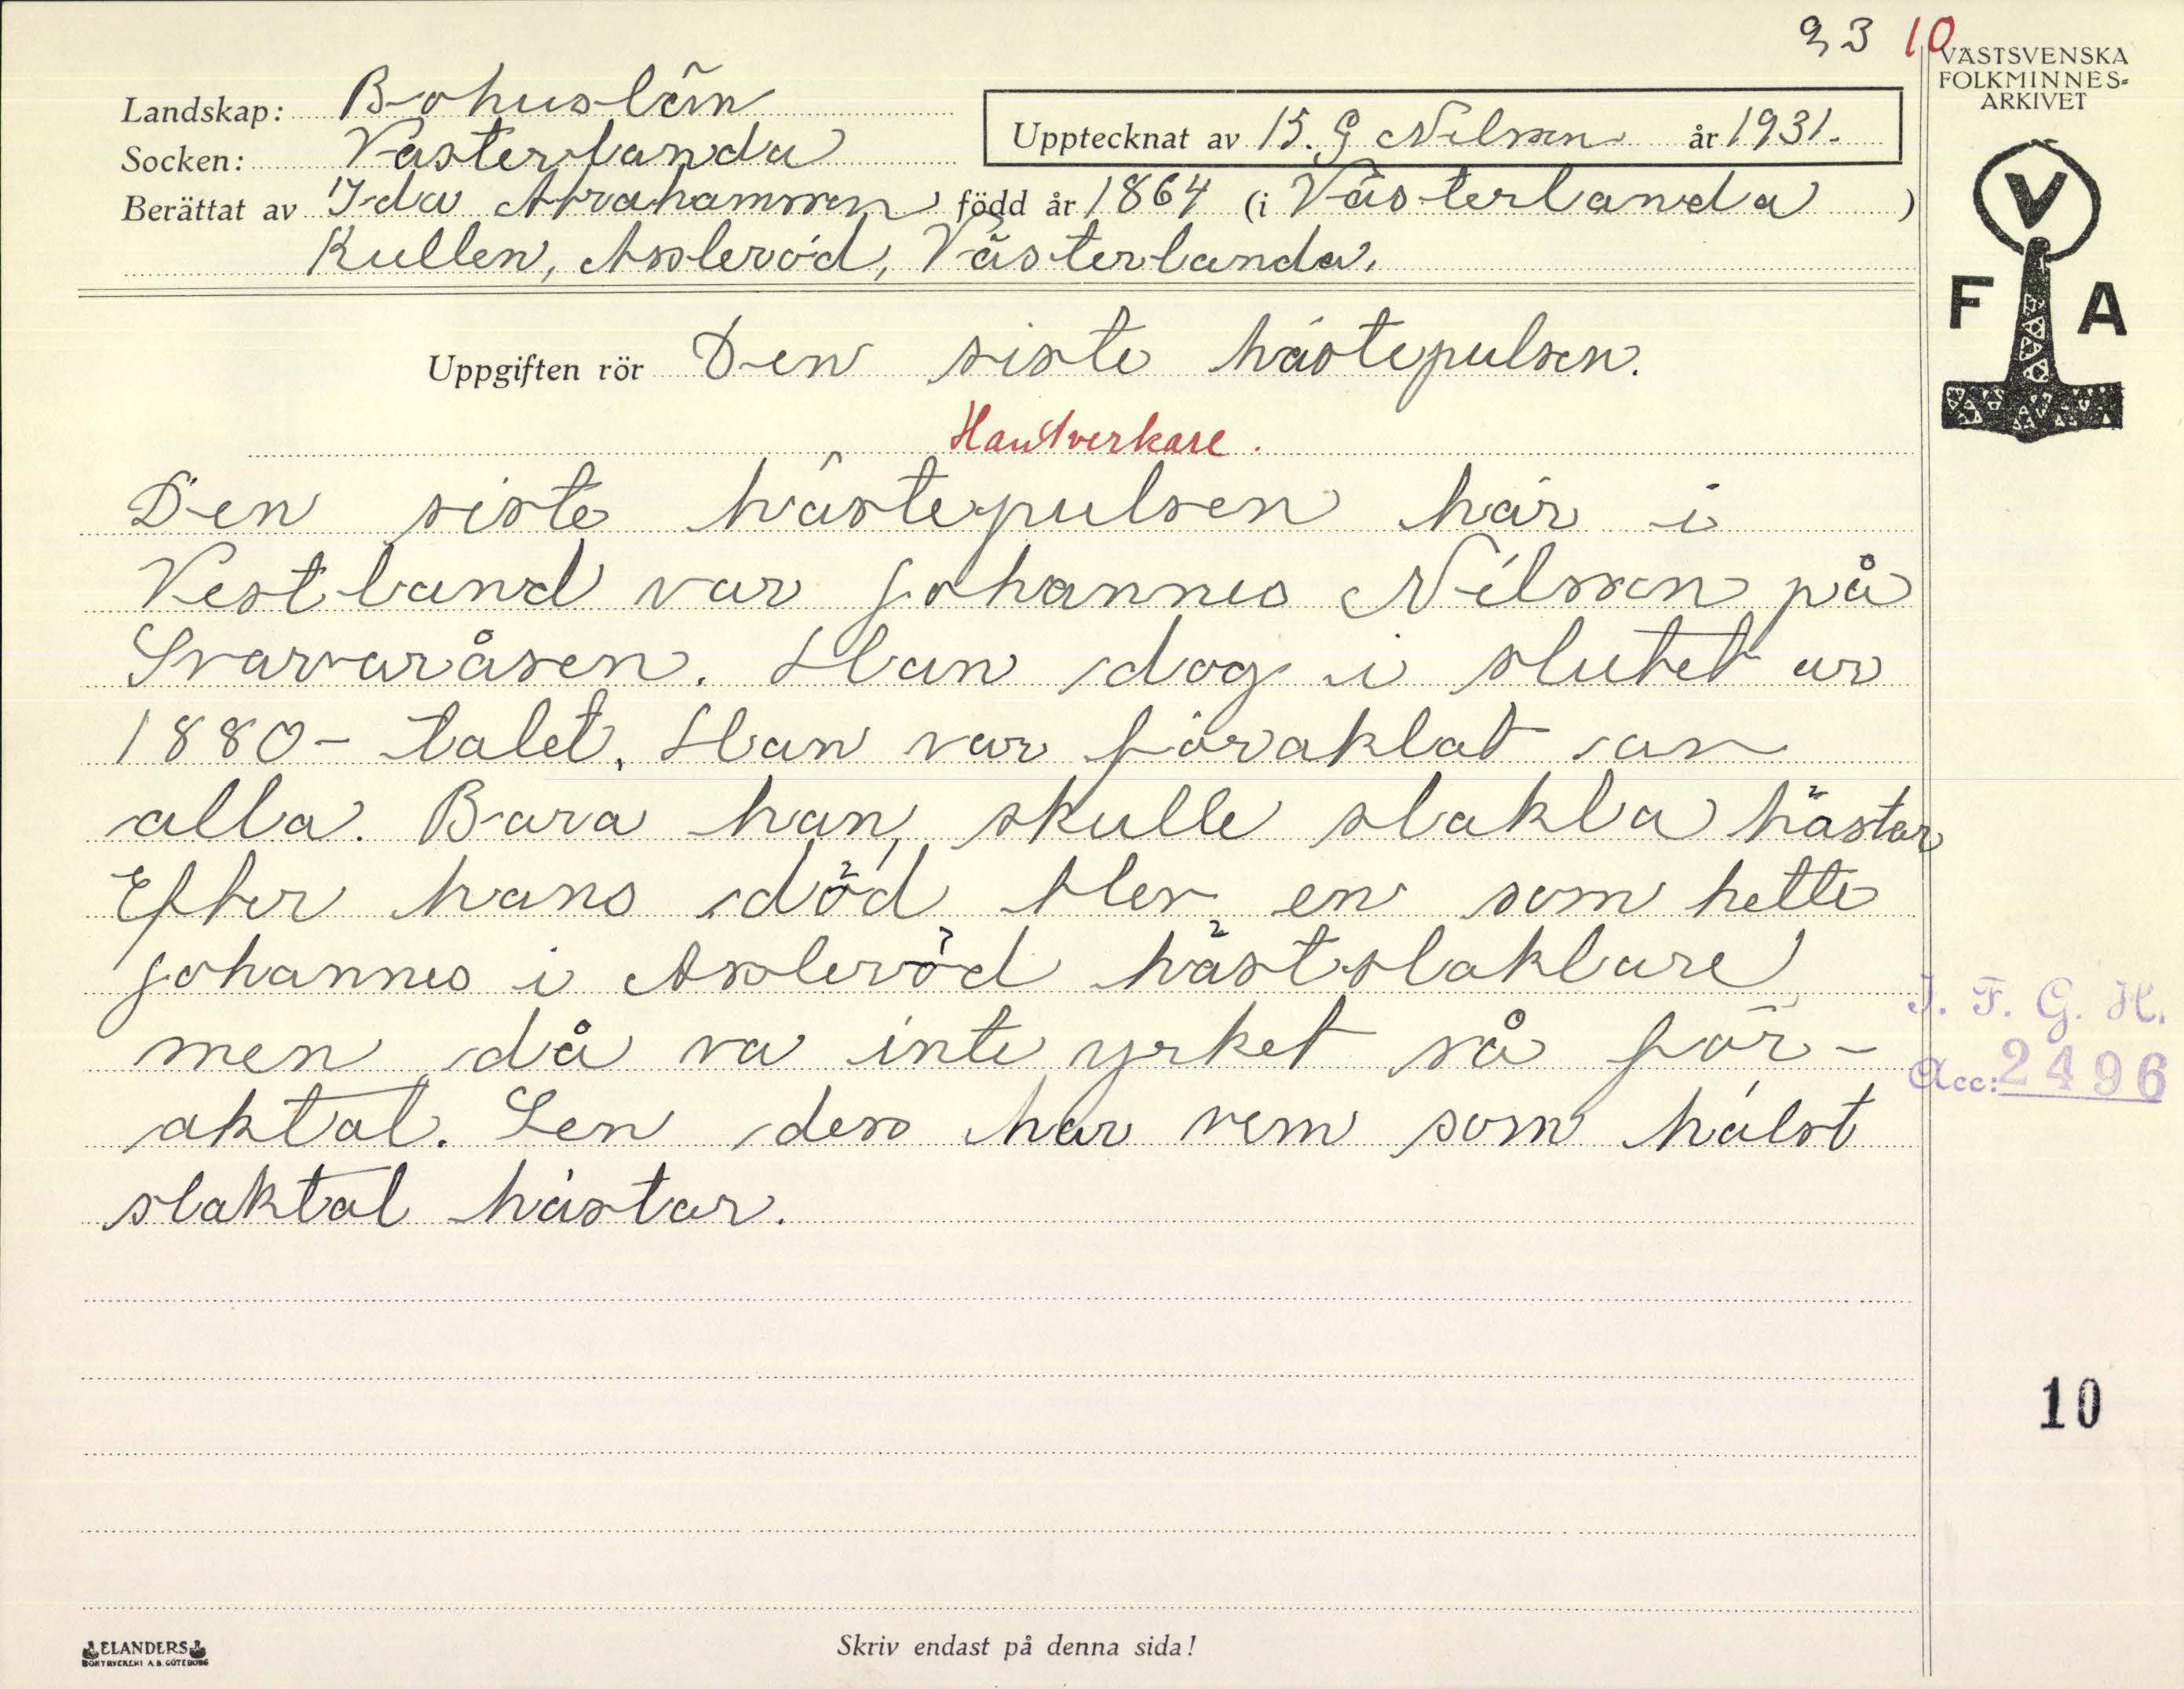 93 10
VÄSTSVENSKA
FOLKMINNES-
ARKIVET
Landskap: Bohuslän
Upptecknat av B. G Nilsson år 1931.
Socken: Västerlanda
Berättat av Ida Abrahamsson född år 1864 (i Västerlanda)
Kullen, Assleröd, Västerlanda.
V
F A
Uppgiften rör Den siste hästepulsen.
Hantverkare.
Den siste hästepulsen här i
Vestland var Johannes Nilsson på
Svarvaråsen. Han dog i slutet av
1880-talet. Han var föraktat av
alla. Bara han skulle slakta hästar
Efter hans död blev en som hette
Johannes i Assleröd hästslaktare
men då va inte yrket så för-
aktat. Sen dess har vem som hälst
slaktat hästar.
I. F. G. H.
Acc: 2496
10
ELANDERS
BOKTRYCKERI A.B. GÖTEBORG
Skriv endast på denna sida!